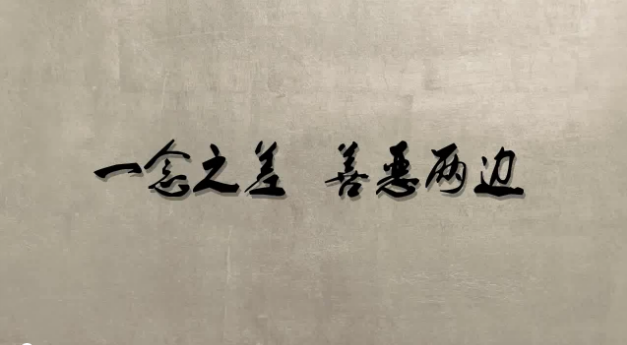 一念之差 善恶两边